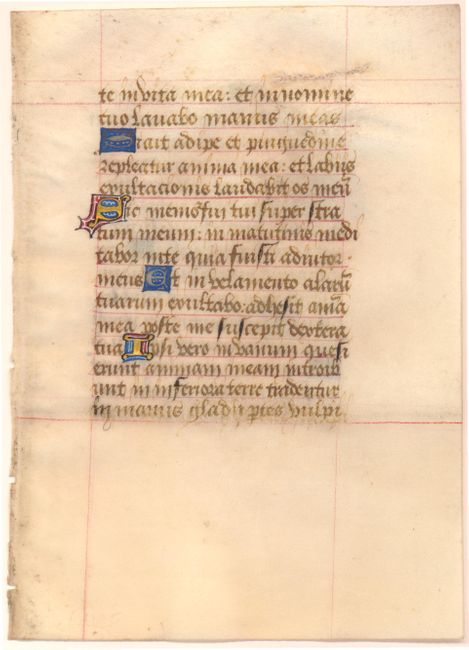 te in vita mea: et in nomine
tuo lauabo manus meas
Sicut adipe et pinguedine
repleatur anima mea: et labiis
exultacionis laudabit os meū
Sic memor fui tui super stra
tum meum: in matutinis medi
tabor in te quia fuisti adiutor
meus Et in velamento alarū
tuarum exultabo: adhesit aīa
mea poste me suscepit dextera
tua Ipsi vero in vanum quesi
erunt animam meam introib
unt in inferiora terre tradentur
in manus gladii ptes vulpi